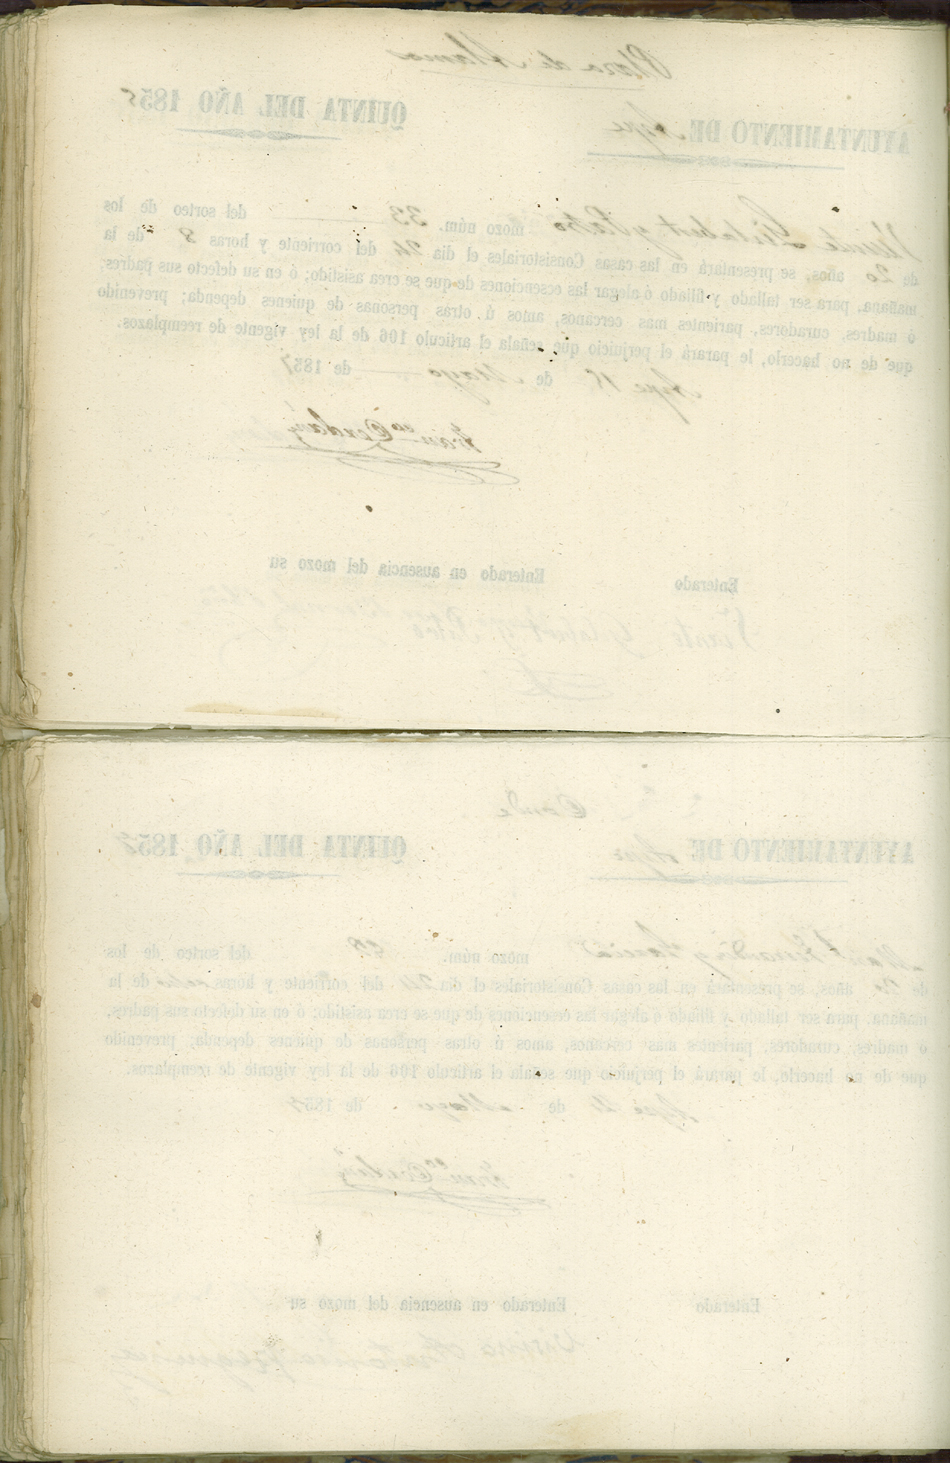 Plaza de
AYUNTAMIENTO DE Aspe
QUINTA DEL AÑO 1858
Vicente Gilabert y Pastor mozo núm. 33 del sorteo de los
de 20 años, se presentará en las casas Consistoriales el dia 24 del corriente y horas 8 de la
mañana, para ser tallado y filiado ó alegar las ecsenciones de que se crea asistido; ó en su defecto sus padres,
ó madres, curadores, parientes mas cercanos, amos ú otras personas de quienes dependa; prevenido
que de no hacerlo, le parará el perjuicio que señala el artículo 106 de la ley vigente de reemplazos.
Aspe de Mayo de 1857
Enterado
Enterado en ausencia del mozo su
Vicente Gilabert
Conde
AYUNTAMIENTO DE Aspe
QUINTA DEL AÑO 185
y Garcia mozo núm. del sorteo de los
de 20 años, se presentará en las casas Consistoriales el dia 24 del corriente y horas ocho de la
mañana, para ser tallado y filiado ó alegar las ecsenciones de que se crea asistido; ó en su defecto sus padres,
ó madres, curadores, parientes mas cercanos, amos ú otras personas de quienes dependa; prevenido
que de no hacerlo, le parará el perjuicio que señala el artículo 106 de la ley vigente de reemplazos.
Aspe de Mayo de 1857
Enterado
Enterado en ausencia del mozo su
Antonia